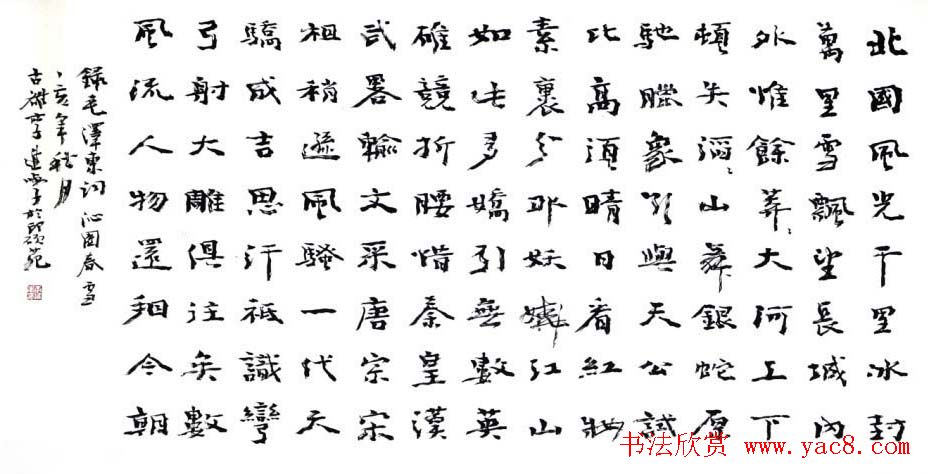 北國風光千里冰封
萬里雪飄望長城內
外惟餘莽〻大河上下
頓失滔〻山舞銀蛇原
馳臘象欲與天公試
比高須晴日看紅妝
素裹分外妖嬈江山
如此多嬌引無數英
雄競折腰惜秦皇漢
武略輸文采唐宗宋
祖稍遜風騷一代天
驕成吉思汗祗識彎
弓射大雕俱往矣數
風流人物還看今朝
錄毛澤東詞沁園春雪
亥年秋月
古 於 苑
书法欣赏 www.yac8.com